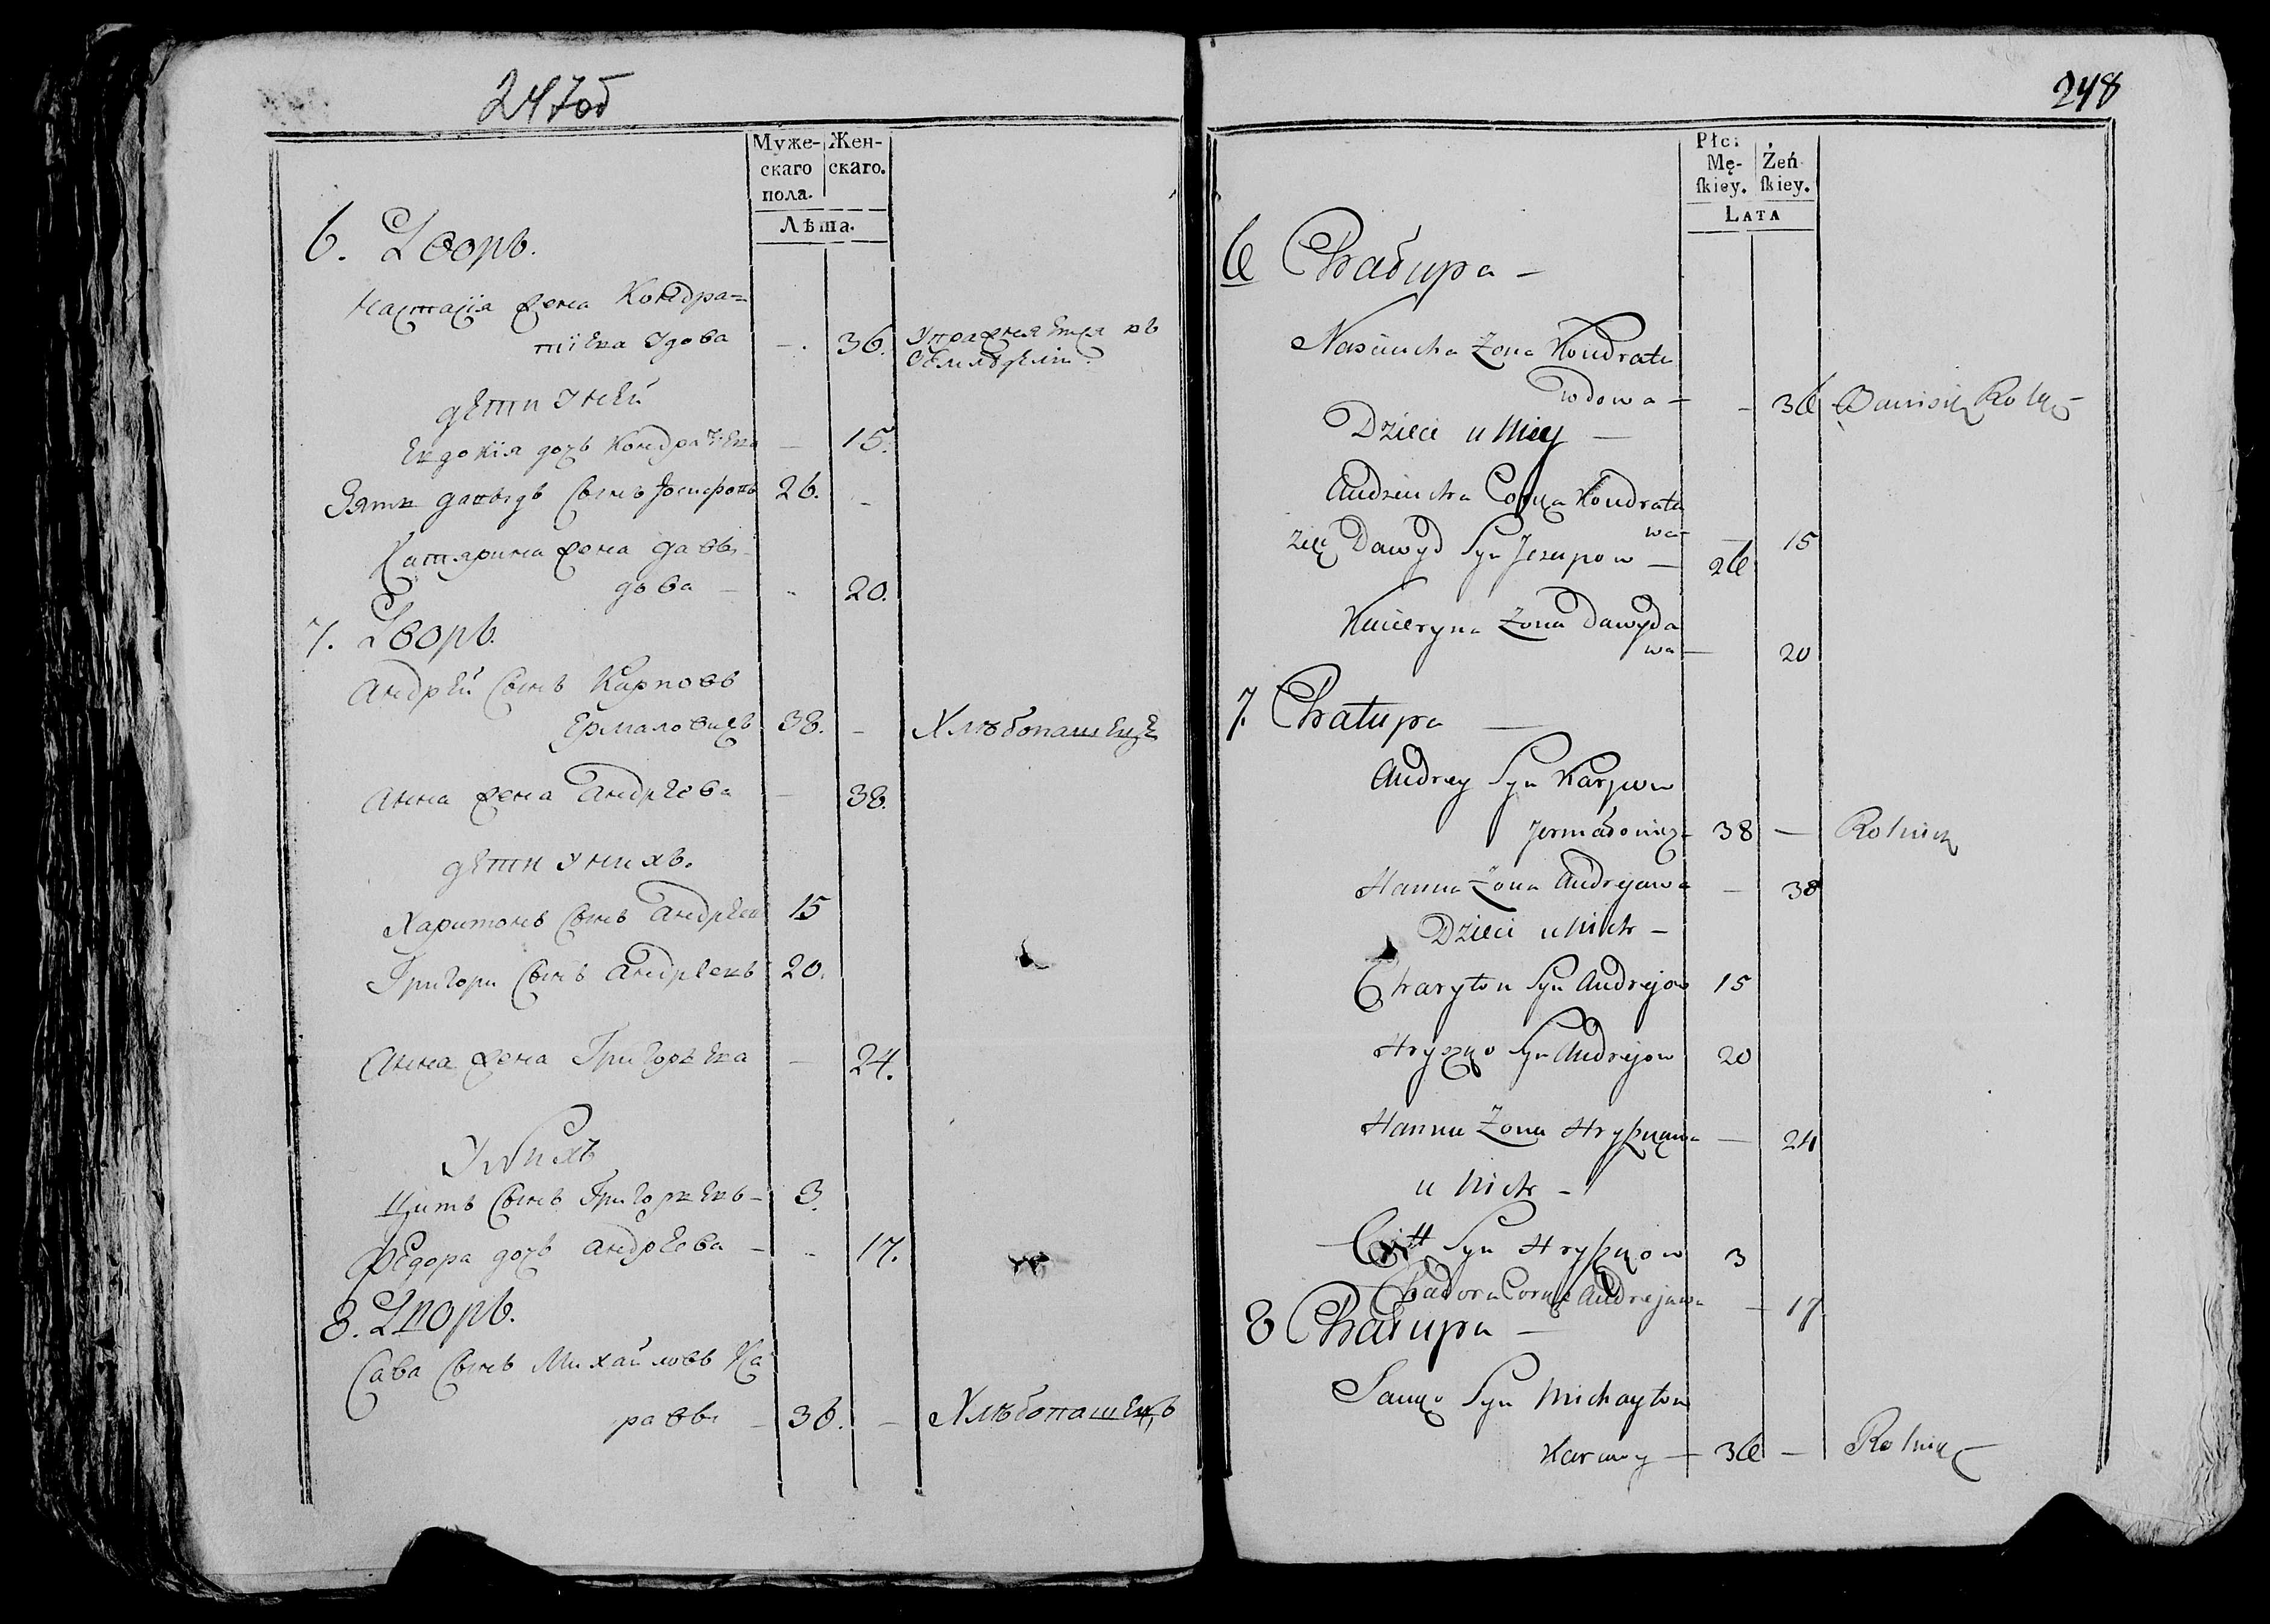 247об
Муже-
скаго
пола.
Жен-
скаго.
Лѣта.
6. Дворъ.
Настасія жена Кондра=
тіева вдова — 36. Упражняется въ
Земледѣліи.
дети у ней
Евдокія дочь Кондратева — 15.
Зять давыдъ сынъ Іосифовъ 26. -
Катярина жена давы-
дова — 20.
7. Дворъ.
андрей сынъ Карповъ
Ермаловичъ 38. - Хлѣбопашецъ
анна жена андреева — 38.
дети у нихъ.
Харитонъ сынъ андреевъ 15
Григори сынъ андреевъ 20.
анна жена Григорьева — 24.
У нихъ
Титъ сынъ Григорьевъ - 3.
Федора дочь андреева - 17.
8. Дворъ.
Сава сынъ Михайловъ Ка
равы - 36. - Хлѣбопашецъ
248
Płci
Mę-
skiey.
Żeń
skiey.
Lata
6 Chałupa —
Nasciucha Zona Kondrata
wdowa — - 36
Dzieci u Niey —
Audziucha Corka Kondrata
wa — 15
Zięć Dawyd Syn Jezupow — 26
Kacieryna Zona Dawyda
wa — 20
7. Chatupa —
Andrey Syn Karpow
Jermałowicz - 38 — Rolnik
Hanna Zona Andrejowa — 38
Dzieci u Nich —
Charyton Syn Andrejow 15
Hryszko Syn Andrejow 20
Hanna Zona Hryszkowa — 24
u Nich -
Citt Syn Hryszkow 3
Chadora Corka Andrejowa — 17
8 Chałupa —
Sawko Syn Michayłow
Karawy — 36 — Rolnik